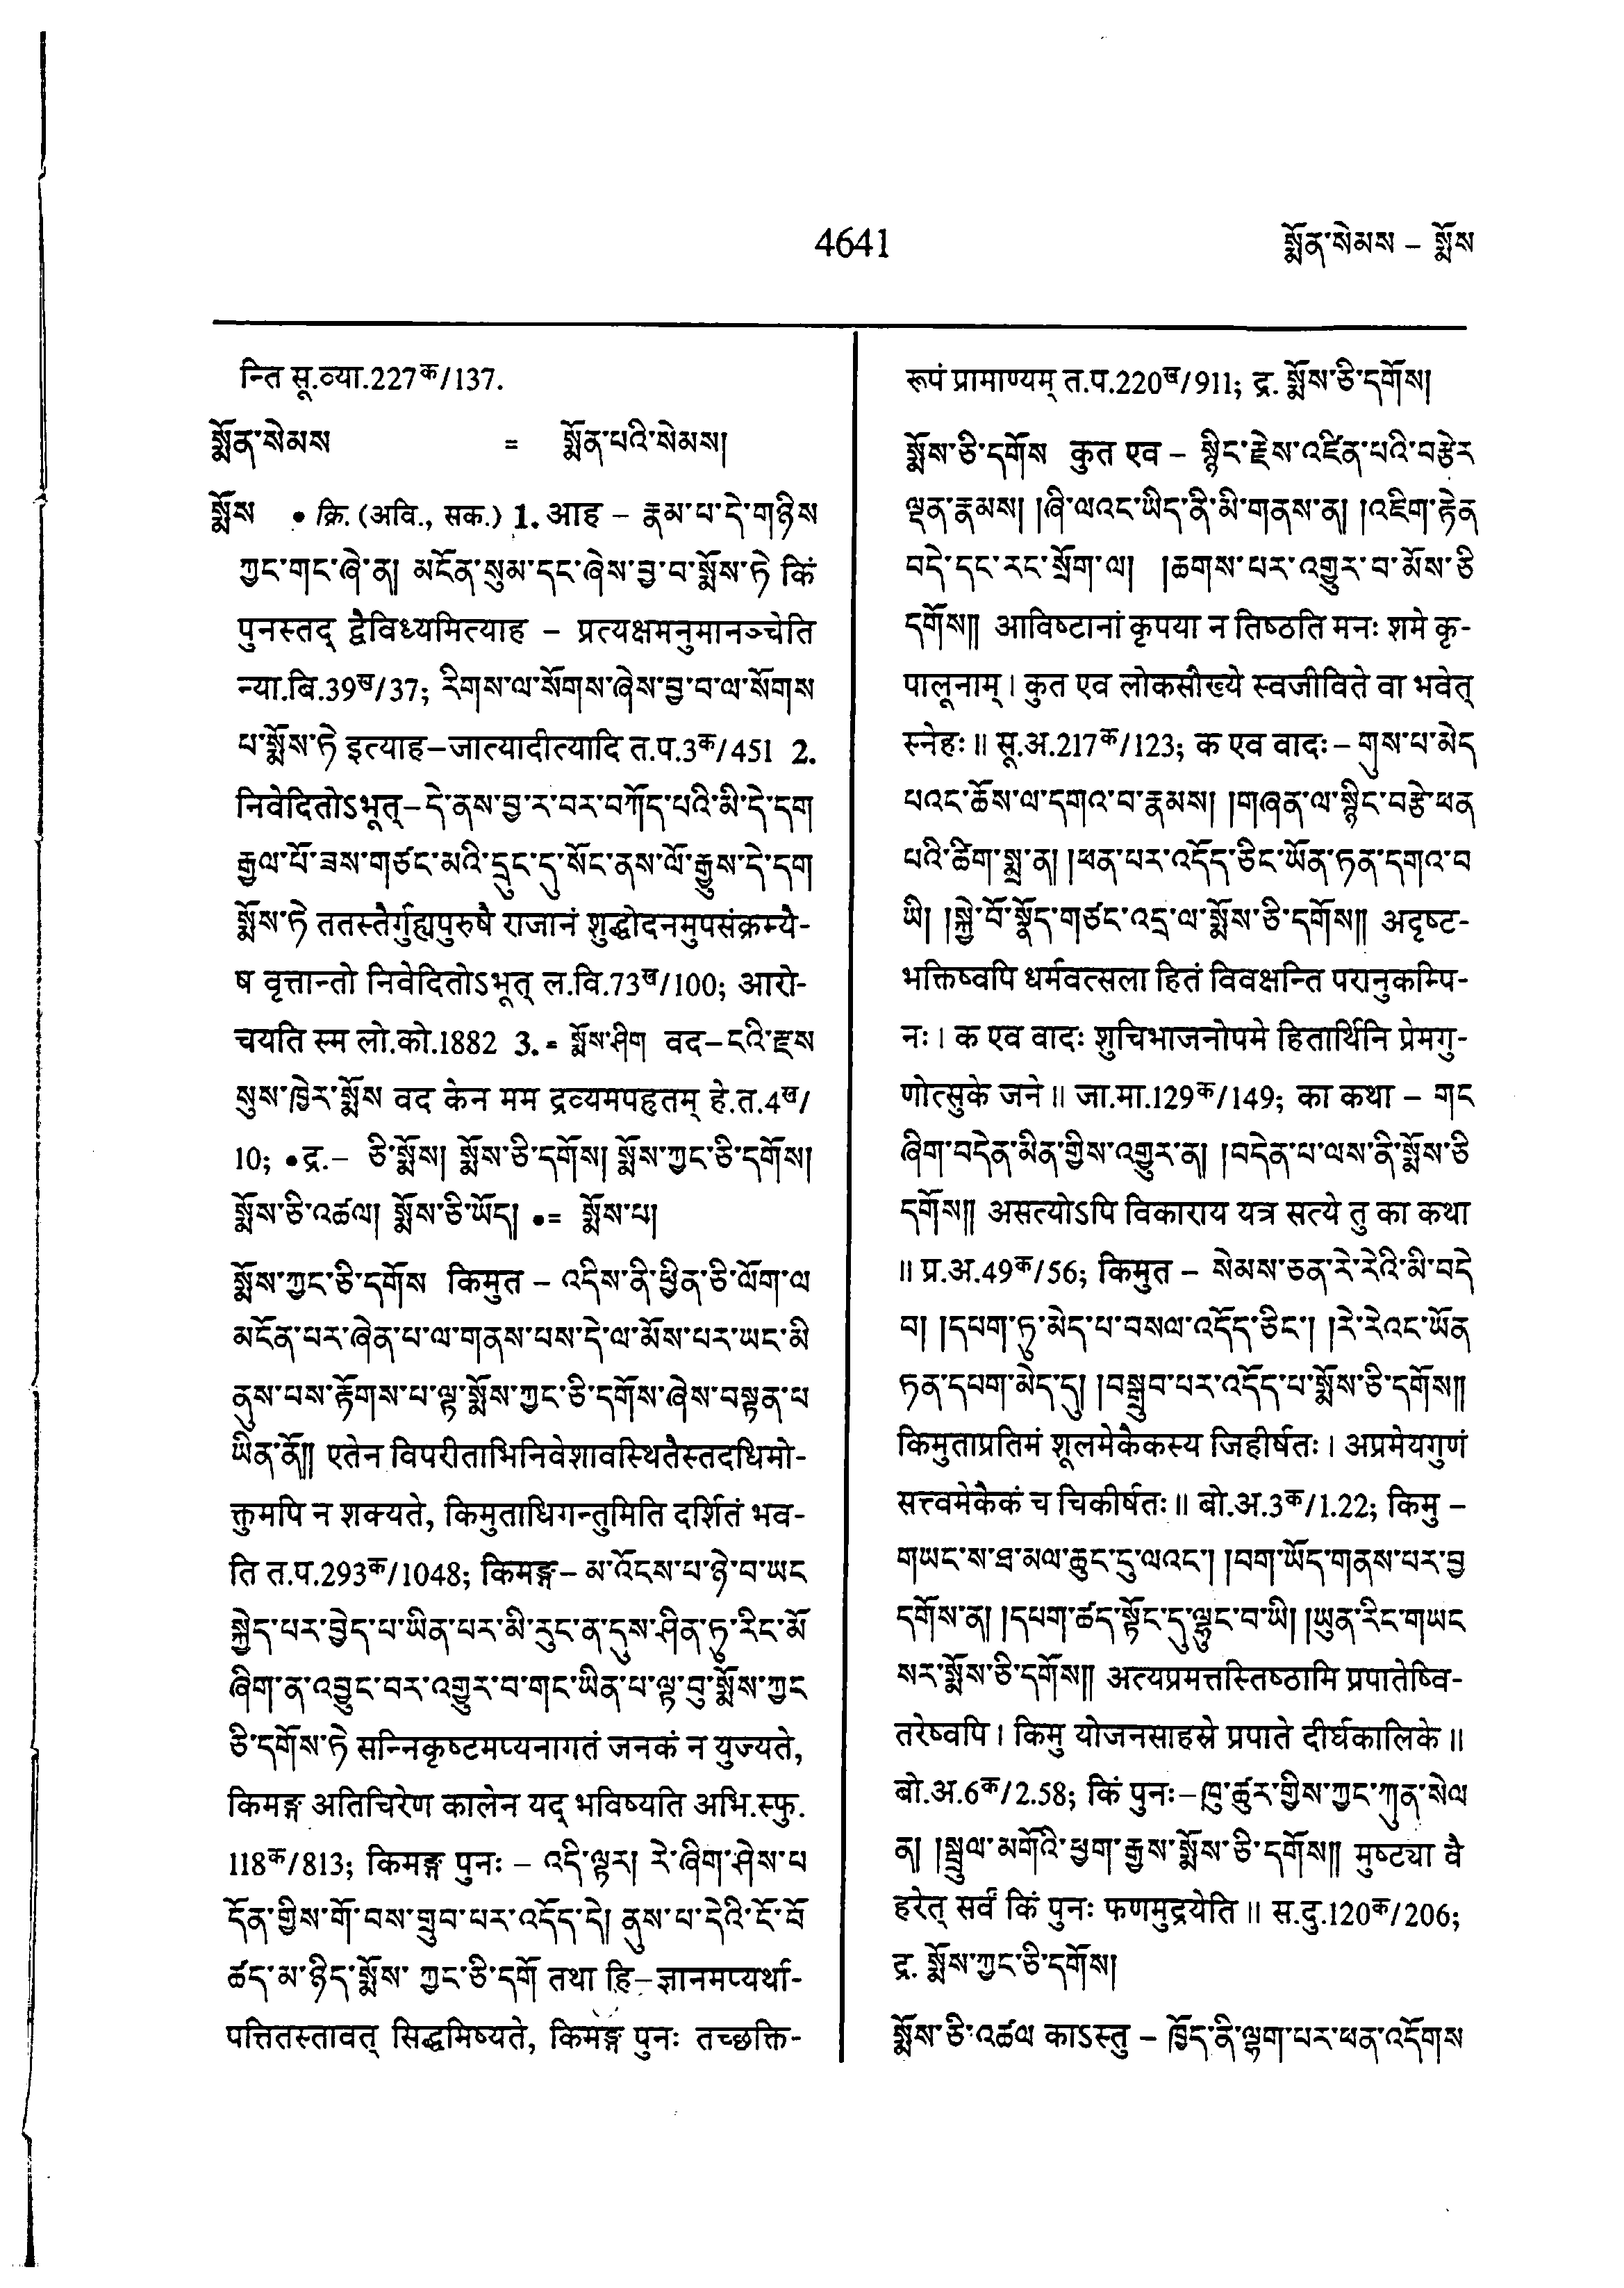 4641
སྨོན་སེམས – སྨོས
न्ति सू.व्या.227क/137.
སྨོན་སེམས = སྨོན་པའི་སེམས།
སྨོས • क्रि. (अवि., सक.) 1. आह – རྣམ་པ་དེ་གཉིས
ཀྱང་གང་ཞེ་ན། མངོན་སུམ་དང་ཞེས་བྱ་བ་སྨོས་ཏེ किं
पुनस्तद् द्वैविध्यमित्याह – प्रत्यक्षमनुमानञ्चेति
न्या.बि.39ख/37; རིགས་ལ་སོགས་ཞེས་བྱ་བ་ལ་སོགས
པ་སྨོས་ཏེ इत्याह–जात्यादीत्यादि त.प.3क/451 2.
निवेदितोऽभूत्–དེ་ནས་བྱ་ར་བར་བཀོད་པའི་མི་དེ་དག
རྒྱལ་པོ་ཟས་གཙང་མའི་དྲུང་དུ་སོང་ནས་ལོ་རྒྱུས་དེ་དག
སྨོས་ཏེ ततस्तैर्गुह्यपुरुषै राजानं शुद्धोदनमुपसंक्रम्यै-
ष वृत्तान्तो निवेदितोऽभूत् ल.वि.73ख/100; आरो-
चयति स्म लो.को.1882 3. = སྨོས་ཤིག वद–ངའི་རྫས
སུས་ཁྱེར་སྨོས वद केन मम द्रव्यमपहृतम् हे.त.4ख/
10; •द्र.– ཅི་སྨོས། སྨོས་ཅི་དགོས། སྨོས་ཀྱང་ཅི་དགོས།
སྨོས་ཅི་འཚལ། སྨོས་ཅི་ཡོད། •= སྨོས་པ།
སྨོས་ཀྱང་ཅི་དགོས किमुत – འདིས་ནི་ཕྱིན་ཅི་ལོག་ལ
མངོན་པར་ཞེན་པ་ལ་གནས་པས་དེ་ལ་མོས་པར་ཡང་མི
ནུས་པས་རྟོགས་པ་ལྟ་སྨོས་ཀྱང་ཅི་དགོས་ཞེས་བསྟན་པ
ཡིན་ནོ།། एतेन विपरीताभिनिवेशावस्थितैस्तदधिमो-
क्तुमपि न शक्यते, किमुताधिगन्तुमिति दर्शितं भव-
ति त.प.293क/1048; किमङ्ग– མ་འོངས་པ་ཉེ་བ་ཡང
སྐྱེད་པར་བྱེད་པ་ཡིན་པར་མི་རུང་ན་དུས་ཤིན་ཏུ་རིང་མོ
ཞིག་ན་འབྱུང་བར་འགྱུར་བ་གང་ཡིན་པ་ལྟ་བུ་སྨོས་ཀྱང
ཅི་དགོས་ཏེ सन्निकृष्टमप्यनागतं जनकं न युज्यते,
किमङ्ग अतिचिरेण कालेन यद् भविष्यति अभि.स्फु.
118क/813; किमङ्ग पुनः – འདི་ལྟར། རེ་ཞིག་ཤེས་པ
དོན་གྱིས་གོ་བས་གྲུབ་པར་འདོད་དེ། ནུས་པ་དེའི་ངོ་བོ
ཚད་མ་ཉིད་སྨོས་ ཀྱང་ཅི་དགོ तथा हि–ज्ञानमप्यर्था-
पत्तितस्तावत् सिद्धमिष्यते, किमङ्ग पुनः तच्छक्ति-
रूपं प्रामाण्यम् त.प.220ख/911; द्र. སྨོས་ཅི་དགོས།
སྨོས་ཅི་དགོས कुत एव – སྙིང་རྗེས་འཛིན་པའི་བརྩེར
ལྡན་རྣམས། །ཞི་ལའང་ཡིད་ནི་མི་གནས་ན། །འཇིག་རྟེན
བདེ་དང་རང་སྲོག་ལ། །ཆགས་པར་འགྱུར་བ་མོས་ཅི
དགོས།། आविष्टानां कृपया न तिष्ठति मनः शमे कृ-
पालूनाम् । कुत एव लोकसौख्ये स्वजीविते वा भवेत्
स्नेहः ॥ सू.अ.217क/123; क एव वादः – གུས་པ་མེད
པའང་ཆོས་ལ་དགའ་བ་རྣམས། །གཞན་ལ་སྙིང་བརྩེ་ཕན
པའི་ཚིག་སྨྲ་ན། །ཕན་པར་འདོད་ཅིང་ཡོན་ཏན་དགའ་བ
ཡི། །སྐྱེ་བོ་སྣོད་གཙང་འདྲ་ལ་སྨོས་ཅི་དགོས།། अदृष्ट-
भक्तिष्वपि धर्मवत्सला हितं विवक्षन्ति परानुकम्पि-
नः । क एव वादः शुचिभाजनोपमे हितार्थिनि प्रेमगु-
णोत्सुके जने ॥ जा.मा.129क/149; का कथा – གང
ཞིག་བདེན་མིན་གྱིས་འགྱུར་ན། །བདེན་པ་ལས་ནི་སྨོས་ཅི
དགོས།། असत्योऽपि विकाराय यत्र सत्ये तु का कथा
॥ प्र.अ.49क/56; किमुत – སེམས་ཅན་རེ་རེའི་མི་བདེ
བ། །དཔག་ཏུ་མེད་པ་བསལ་འདོད་ཅིང་། །རེ་རེའང་ཡོན
ཏན་དཔག་མེད་དུ། །བསྒྲུབ་པར་འདོད་པ་སྨོས་ཅི་དགོས།།
किमुताप्रतिमं शूलमेकैकस्य जिहीर्षतः । अप्रमेयगुणं
सत्त्वमेकैकं च चिकीर्षतः ॥ बो.अ.3क/1.22; किमु –
གཡང་ས་ཐ་མལ་ཆུང་དུ་ལའང་། །བག་ཡོད་གནས་པར་བྱ
དགོས་ན། །དཔག་ཚད་སྟོང་དུ་ལྷུང་བ་ཡི། །ཡུན་རིང་གཡང
སར་སྨོས་ཅི་དགོས།། अत्यप्रमत्तस्तिष्ठामि प्रपातेष्वि-
तरेष्वपि । किमु योजनसाहस्रे प्रपाते दीर्घकालिके ॥
बो.अ.6क/2.58; किं पुनः–ཁུ་ཚུར་གྱིས་ཀྱང་ཀུན་སེལ
ན། །སྦྲུལ་མགོའི་ཕྱག་རྒྱས་སྨོས་ཅི་དགོས།། मुष्ट्या वै
हरेत् सर्वं किं पुनः फणमुद्रयेति ॥ स.दु.120क/206;
द्र. སྨོས་ཀྱང་ཅི་དགོས།
སྨོས་ཅི་འཚལ काऽस्तु – ཁྱོད་ནི་ལྷག་པར་ཕན་འདོགས